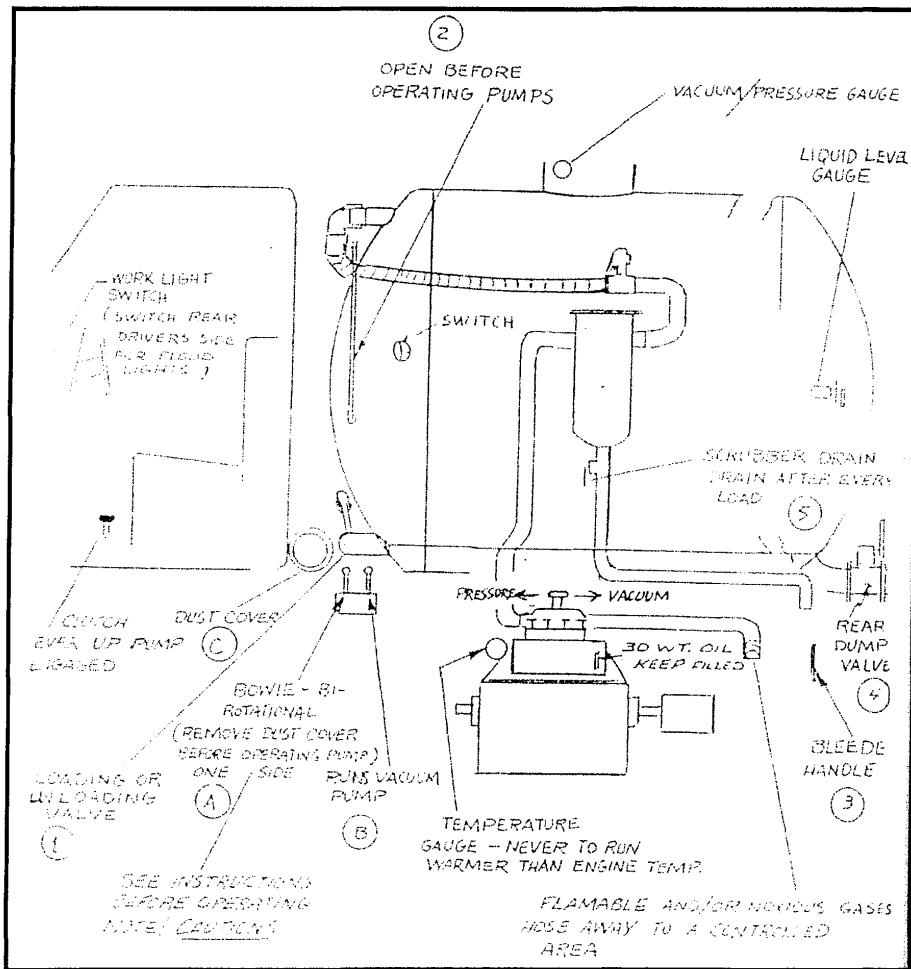 2
OPEN BEFORE
OPERATING PUMPS
VACUUM/PRESSURE GAUGE
LIQUID LEVEL
GAUGE
WORK LIGHT
SWITCH
(SWITCH REAR
DRIVERS SIDE
FOR FLOOD
LIGHTS)
SWITCH
SCRUBBER DRAIN
DRAIN AFTER EVERY
LOAD
5
PRESSURE
VACUUM
30 WT. OIL
KEEP FILLED
REAR
DUMP
VALVE
4
CLUTCH
EVER UP PUMP
GAGED
DUST COVER
C
BOWIE - BI-
ROTATIONAL
(REMOVE DUST COVER
BEFORE OPERATING PUMP)
ONE SIDE
A
RUNS VACUUM
PUMP
B
LOADING OR
UNLOADING
VALVE
1
BLEEDE
HANDLE
3
TEMPERATURE
GAUGE - NEVER TO RUN
WARMER THAN ENGINE TEMP.
SEE INSTRUCTIONS
BEFORE OPERATING
NOTE/ CAUTIONS
FLAMABLE AND/OR NOXIOUS GASES
HOSE AWAY TO A CONTROLLED
AREA